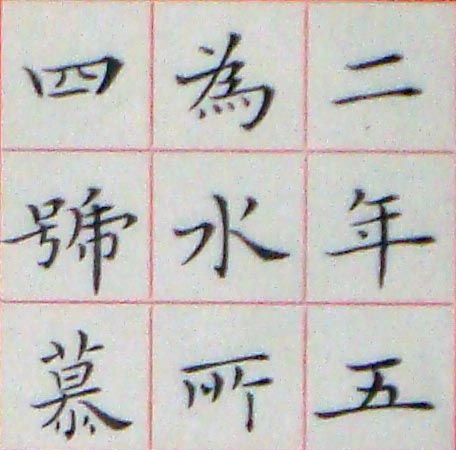 二年五
為水所
四號慕